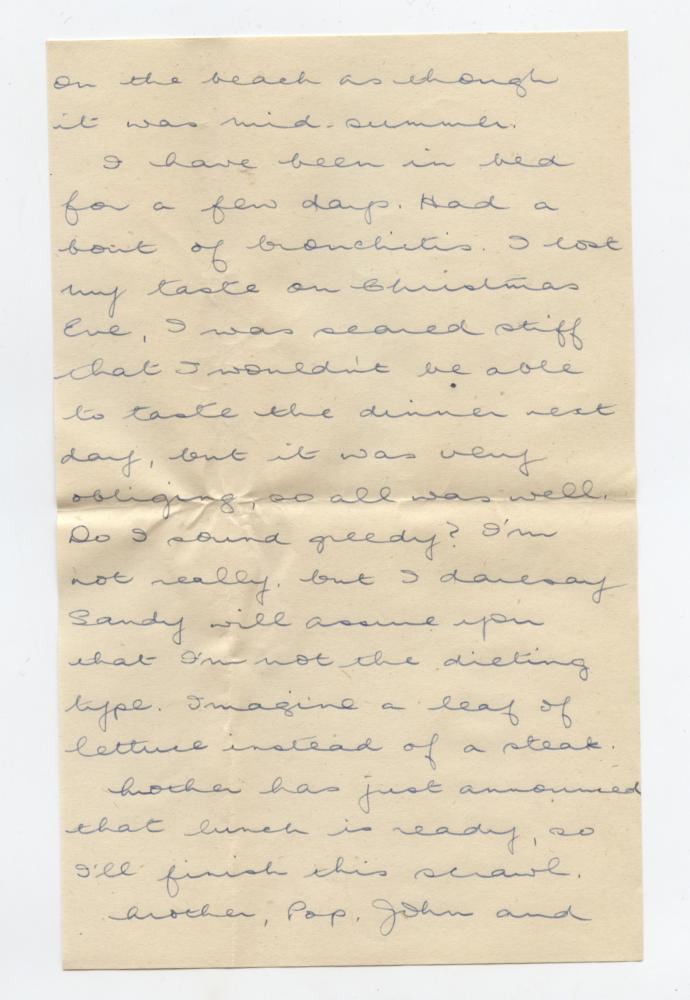 on the beach as though
it was mid-summer.
I have been in bed
for a few days. Had a
bout of bronchitis. I lost
my taste on Christmas
Eve, I was scared stiff
that I wouldn't be able
to taste the dinner next
day, but it was very
obliging, so all was well.
Do I sound greedy? I'm
not really, but I daresay
Sandy will assure you
that I'm not the dieting
type. Imagine a leaf of
lettuce instead of a steak.
Mother has just announced
that lunch is ready, so
I'll finish this scrawl.
Mother, Pop, John and